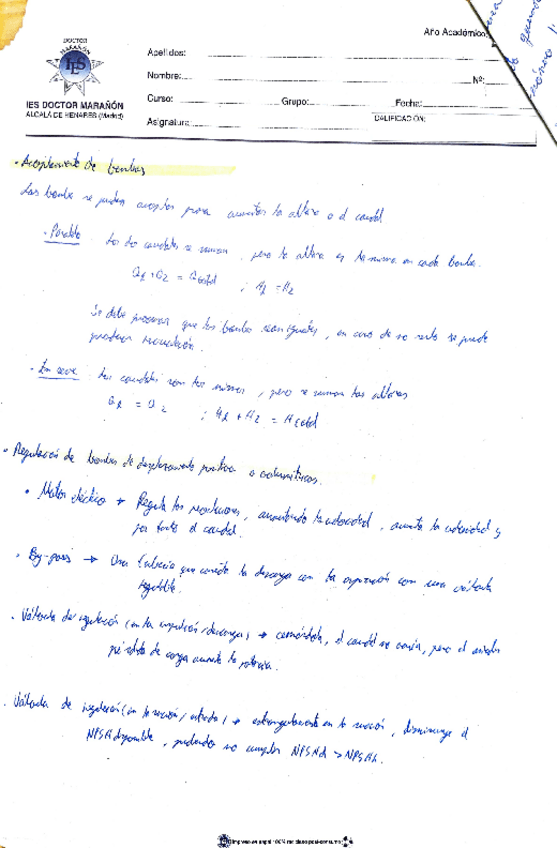 Año Académico:
DOCTOR
MARAÑÓN
IES
IES DOCTOR MARAÑÓN
ALCALÁ DE HENARES (Madrid)
Apellidos:
Nombre: Nº:
Curso: Grupo: Fecha:
Asignatura: CALIFICACIÓN:
• Acoplamiento de bombas
Las bombas se pueden acoplar para aumentar la altura o el caudal
• Paralelo: Los dos caudales se suman, pero la altura es la misma en cada bomba.
Q1 + Q2 = Qtotal ; H1 = H2
Se debe procurar que las bombas sean iguales, en caso de no serlo se puede
producir recirculación.
• En serie: Los caudales son los mismos, pero se suman las alturas
Q1 = Q2 ; H1 + H2 = Htotal
• Regulación de bombas de desplazamiento positivo o volumétricas.
• Motor eléctrico → Regula las revoluciones, aumentando la velocidad, aumenta la velocidad y
por tanto el caudal.
• By-pass → Una tubería que conecta la descarga con la aspiración con una válvula
regulable.
• Válvula de regulación (en la impulsión/descarga) → cerrándola, el caudal no varía, pero el
pérdida de carga aumenta la potencia.
• Válvula de regulación (en la succión/entrada) → estrangulamiento en la succión, disminuye el
NPSH disponible, pudiendo no cumplir NPSHd > NPSHr.